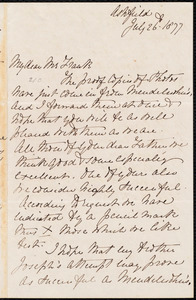 Ashfield
July 26. 1877
My dear Mr Frank
The proof copies of Photos
have just come in from Mendelssohn,
and I forward them at once &
hope that you will be as well
pleased with them as we are.
All Mom & Clyde's Father we
think good & some especially
excellent. One of
we consider highly successful.
According to request we have
indicated by a pencil mark
thus X those which we like
best.
I hope that my Brother
Joseph's attempt may prove
as successful a Mendelssohn,